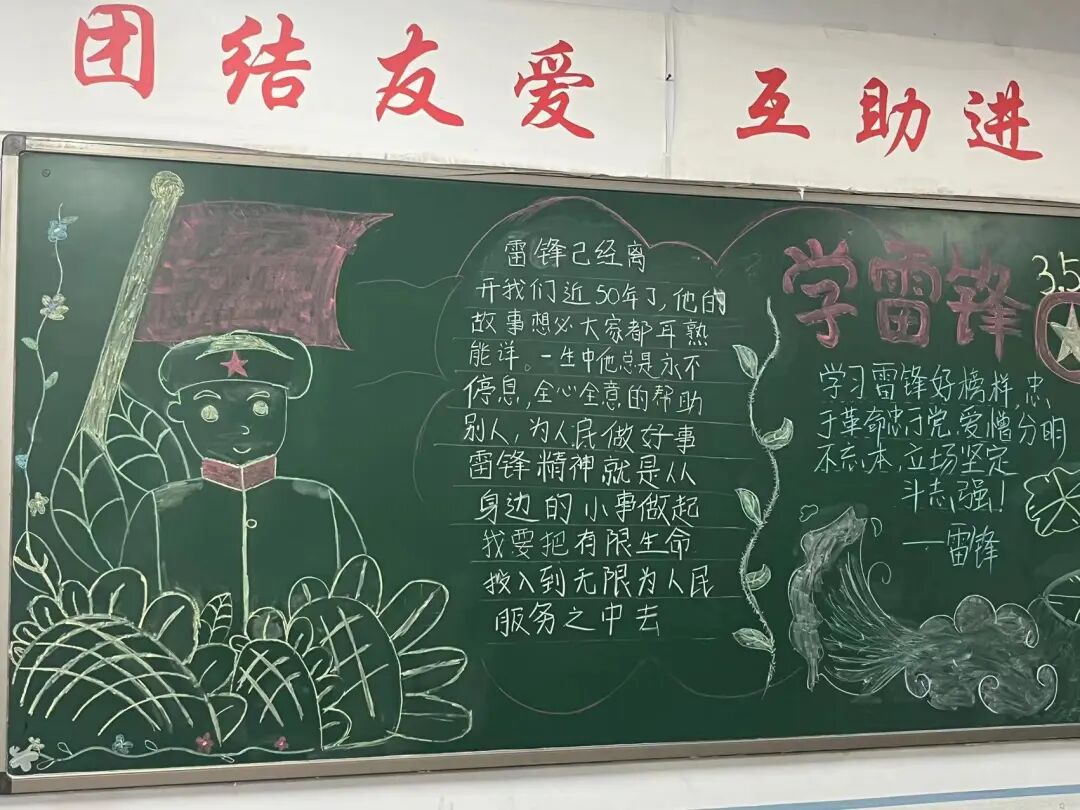 团结友爱 互助进
雷锋已经离
开我们近50年了,他的
故事想必大家都耳熟
能详。一生中他总是永不
停息,全心全意的帮助
别人,为人民做好事
雷锋精神就是从
身边的小事做起
我要把有限生命
投入到无限为人民
服务之中去
学雷锋
3.5
学习雷锋好榜样,忠
于革命忠于党,爱憎分明
不忘本,立场坚定
斗志强!
——雷锋